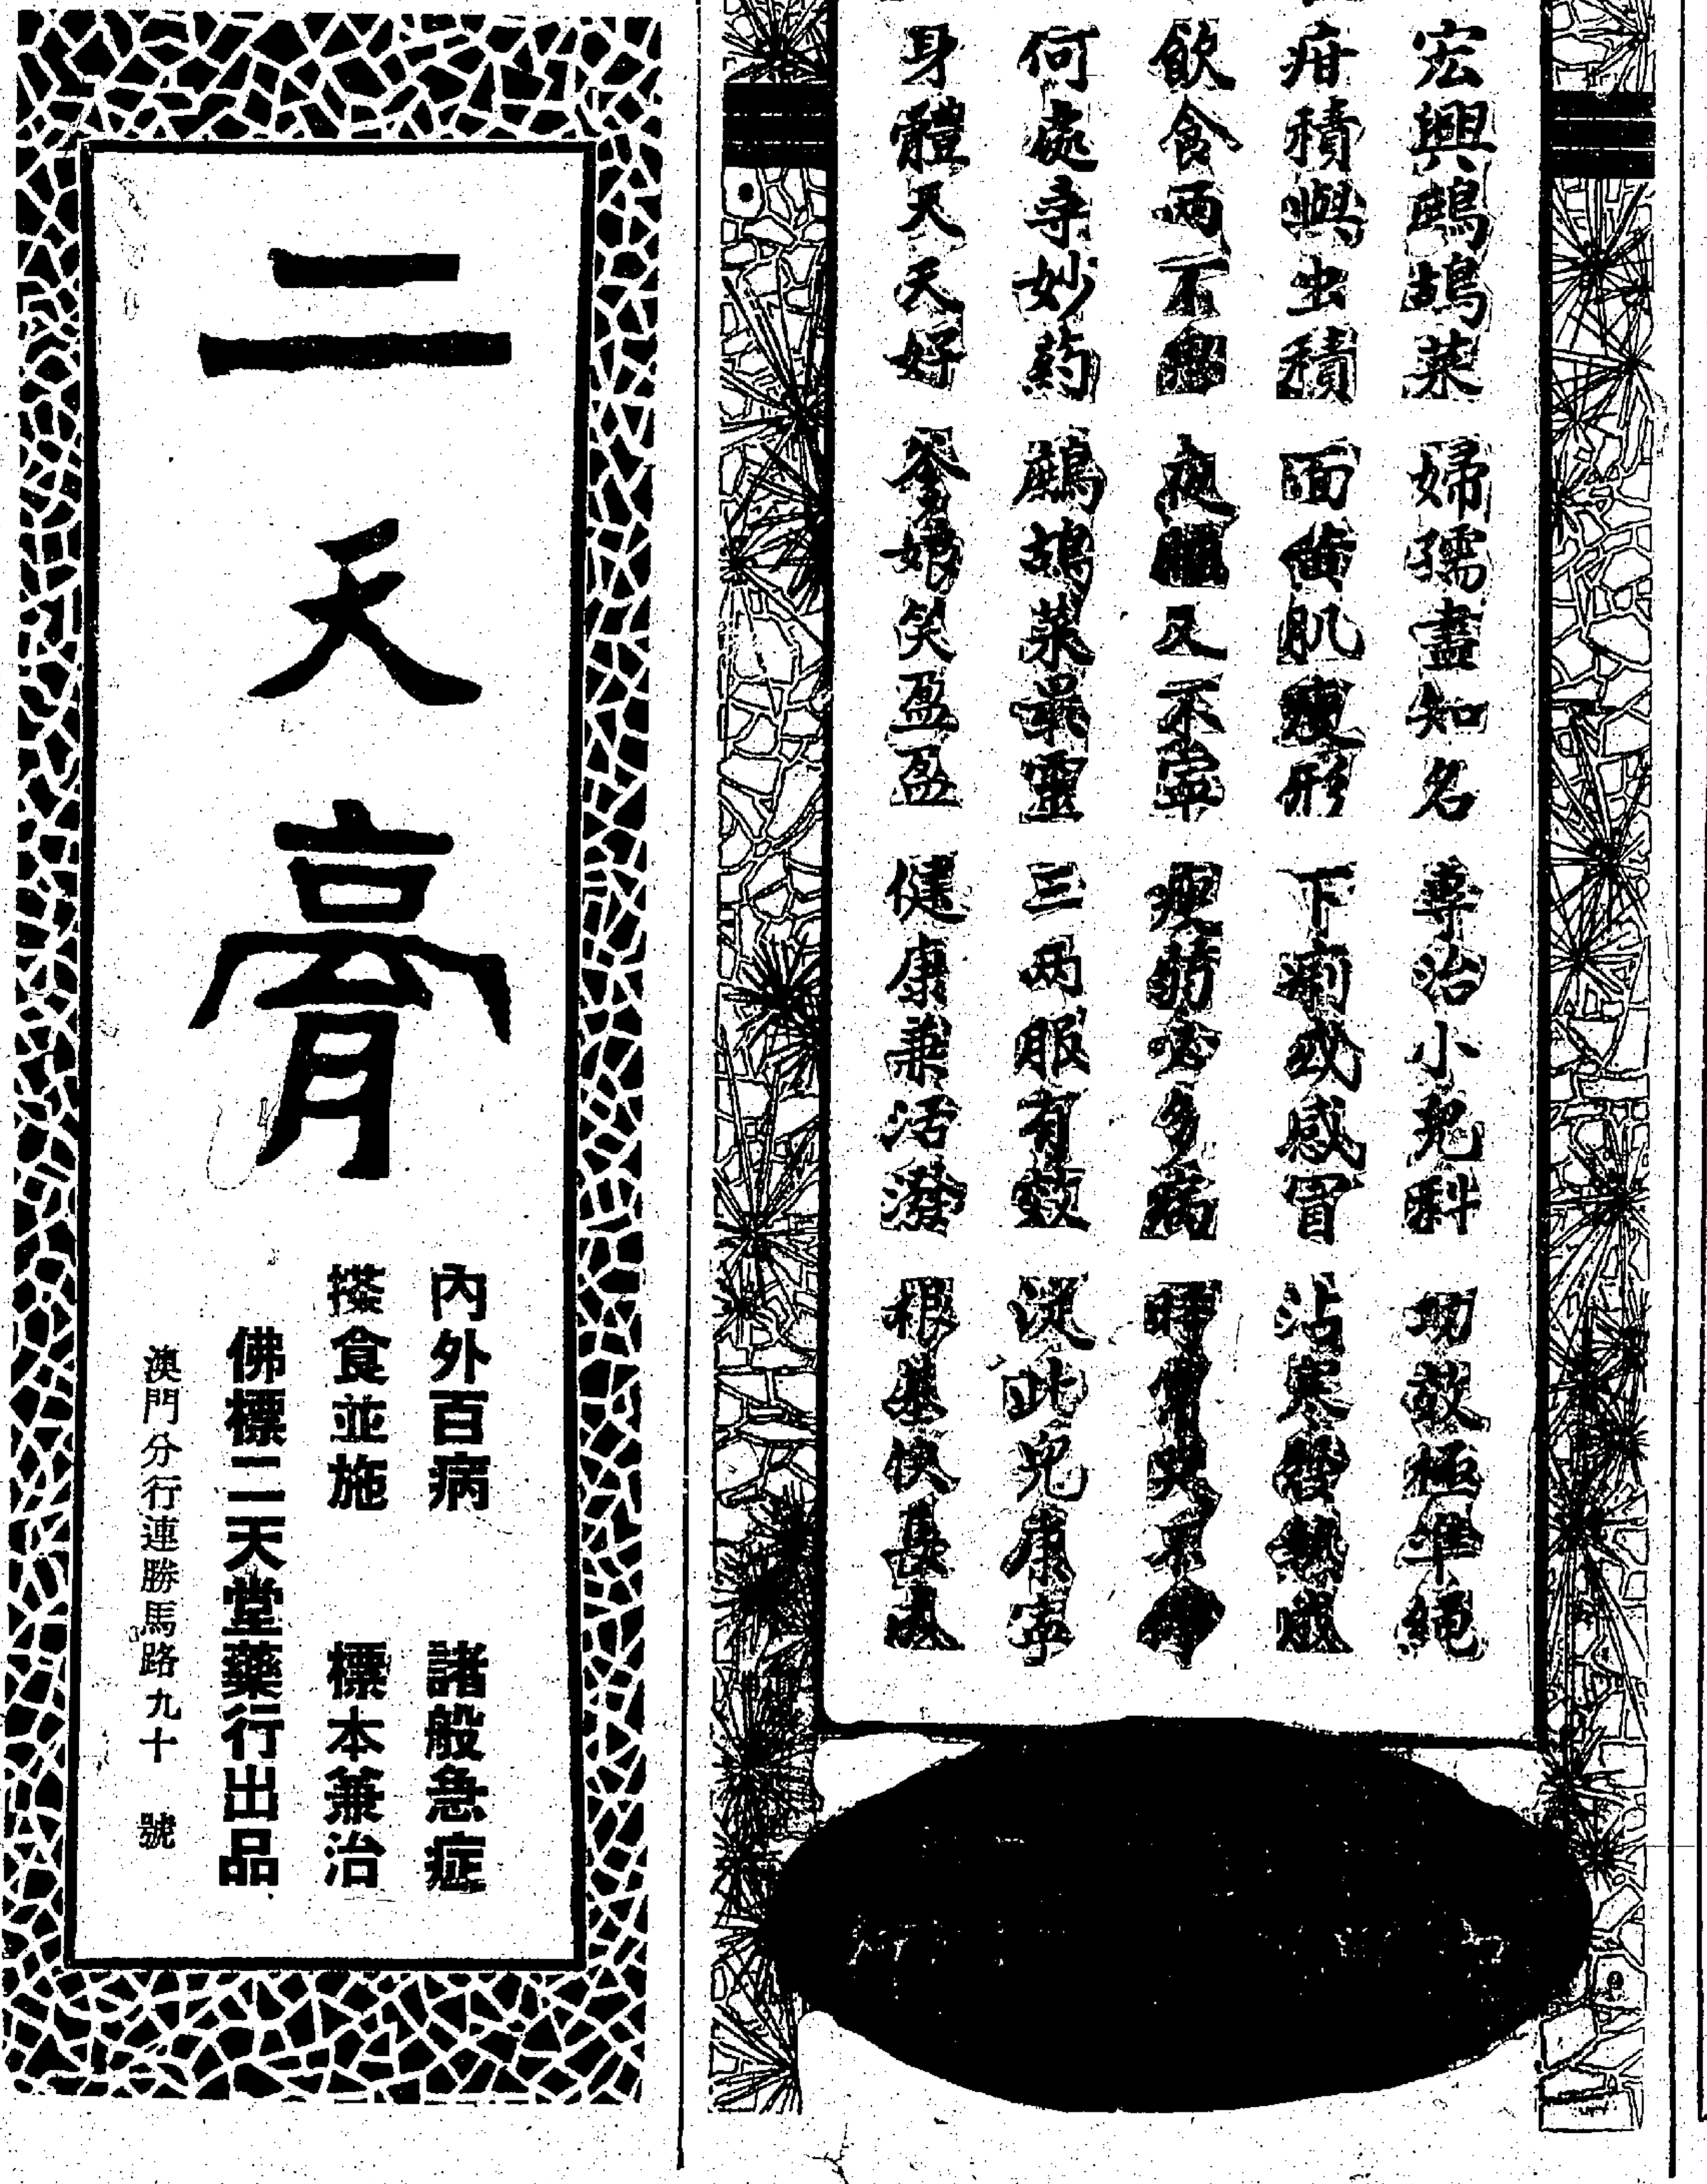 宏興鷓鴣菜 婦孺盡知名 專治小兒科 功效極準繩
疳積與虫積 面黃肌瘦形 下痢或感冒 沾寒發熱
飲食兩不 夜眠又不寧 瘦弱必多病 時常哭不停
何處寻妙药 鷓鴣菜最靈 三两服有效 從此兒康寧
身體天天好 爹娘笑盈盈 健康兼活潑 根基快長成
二天膏
內外百病 諸般急症
搽食並施 標本兼治
佛標二天堂藥行出品
澳門分行連勝馬路九十 號